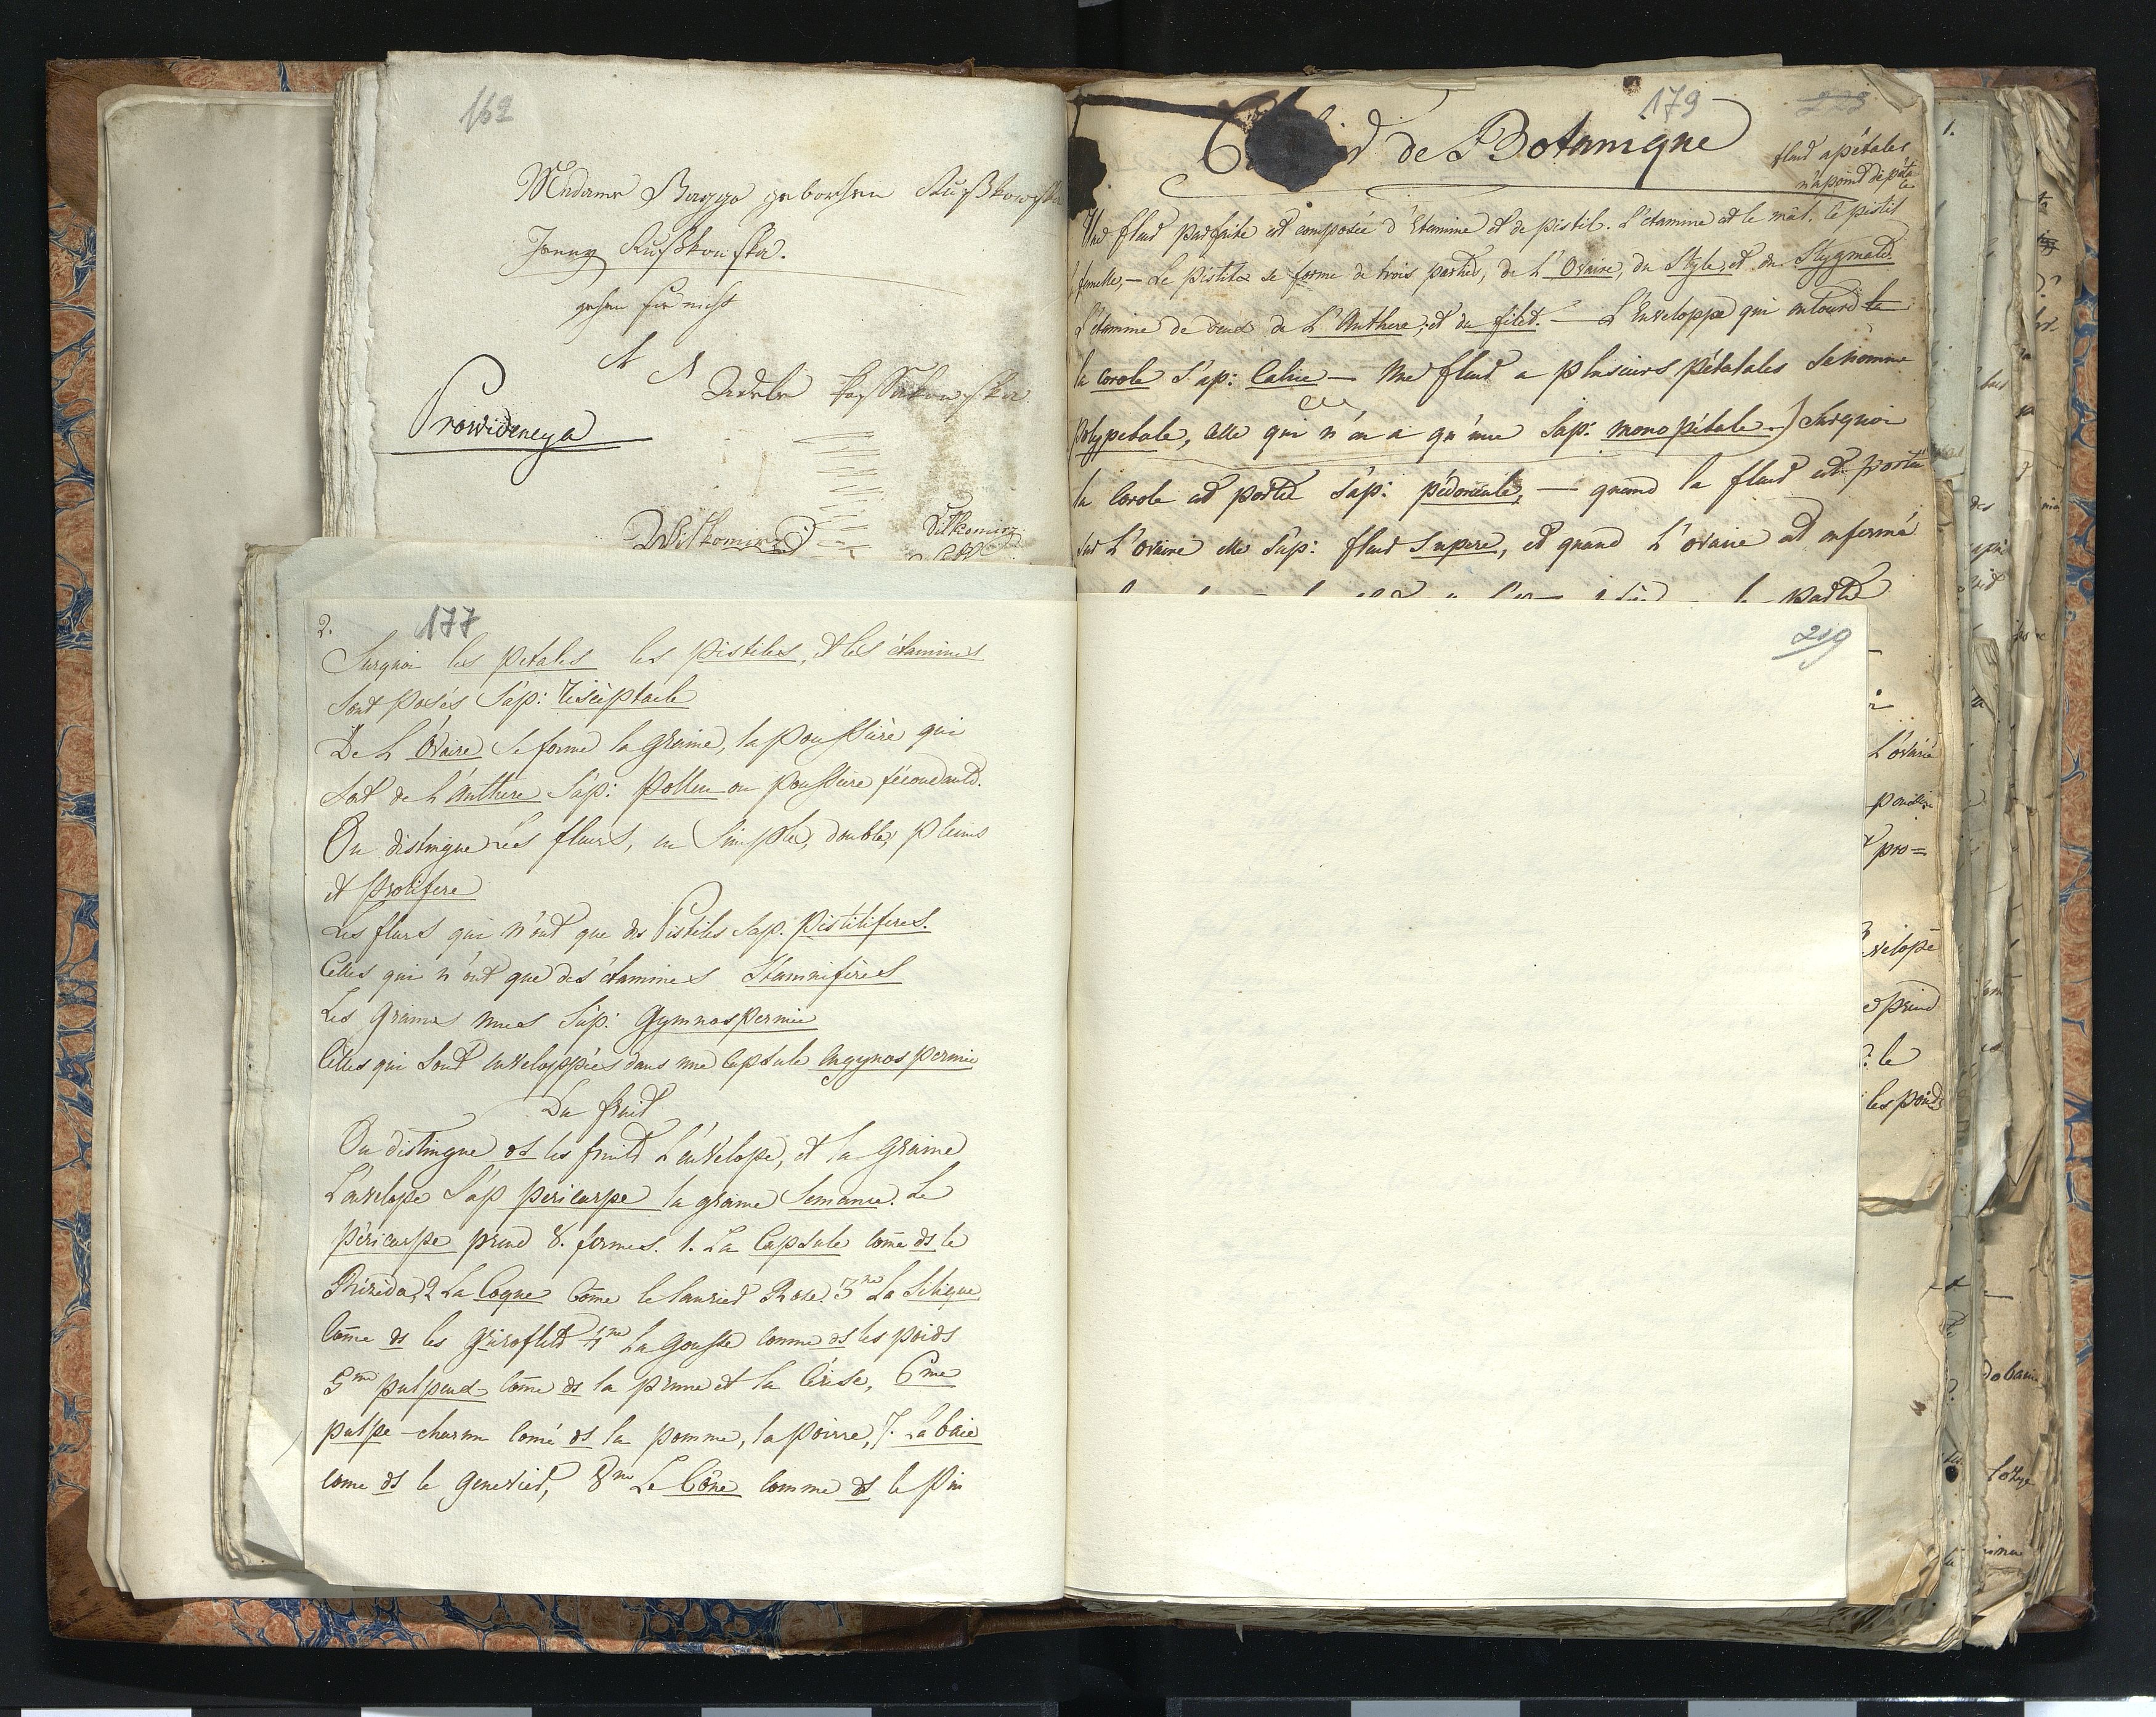 162
Madame Bagge gebohren Rußkowska
Jenny Rußkowska.
gehen sie nicht
A A
Adele Kossakowska
Prowidencya
Wilkomirz
Wilkomirz
2.
177
Surquoi les petales les pistiles, et les étamines
sont posés s'ap: Réséptacle
De L'Ovaire se forme la graine, la poussière qui
sort de L'Anthere s'ap: pollen ou poussiere fécondante.
On distingue les fleurs, en simple, double, pleins
et prolifere
Les fleurs qui n'ont que des Pistiles s'ap. Pistiliferes.
Celles qui n'ont que des étamines Stamnifères
Les graines nues s'ap: Gymnospermie
Celles qui sont enveloppées dans une capsule Angynospermie
Du fruit
On distingue ds les fruits L'envelope, et la graine
L'envelope s'ap pericarpe la graine semance. Le
Péricarpe prend 8. formes. 1. La Capsule come ds le
Rézéda, 2 La Coque Come le laurier Rose. 3me La Silique
Come ds les giroflets 4me La gousse comme ds les poids
5me pulpeux come ds la prune et la Cérise, 6me
pulpe-charnu come ds la pomme, la poirre, 7. La baie
come ds le genevier, 8me Le Cône comme ds le Pin
179
223
de Botanique
fleur apétales
n'a point de péta
les
Une fleur parfaite est composée d'Etamine et de pistil. L'étamine est le mâl. le pistil
femelle, — Le pistile se forme de trois parties, de L'Ovaire, du Style, et du Stygmate
L'étamine de deux de L'Anthere, et du filet. — L'Enveloppe qui entoure le
la corole s'ap: Calice — Une fleur a plusieurs pétatales se nomme
Polypetale, celle qui n'en a qu'une s'ap: monopétale.) Surquoi
la Corole est portée s'ap: pédoncule, — quand la fleur est portée
sur L'ovaire elle s'ap: fleur supere, et quand L'ovaire est enfermé
la partie
219
L'ovaire
pro=
velope
prend
: le
les poids
1.